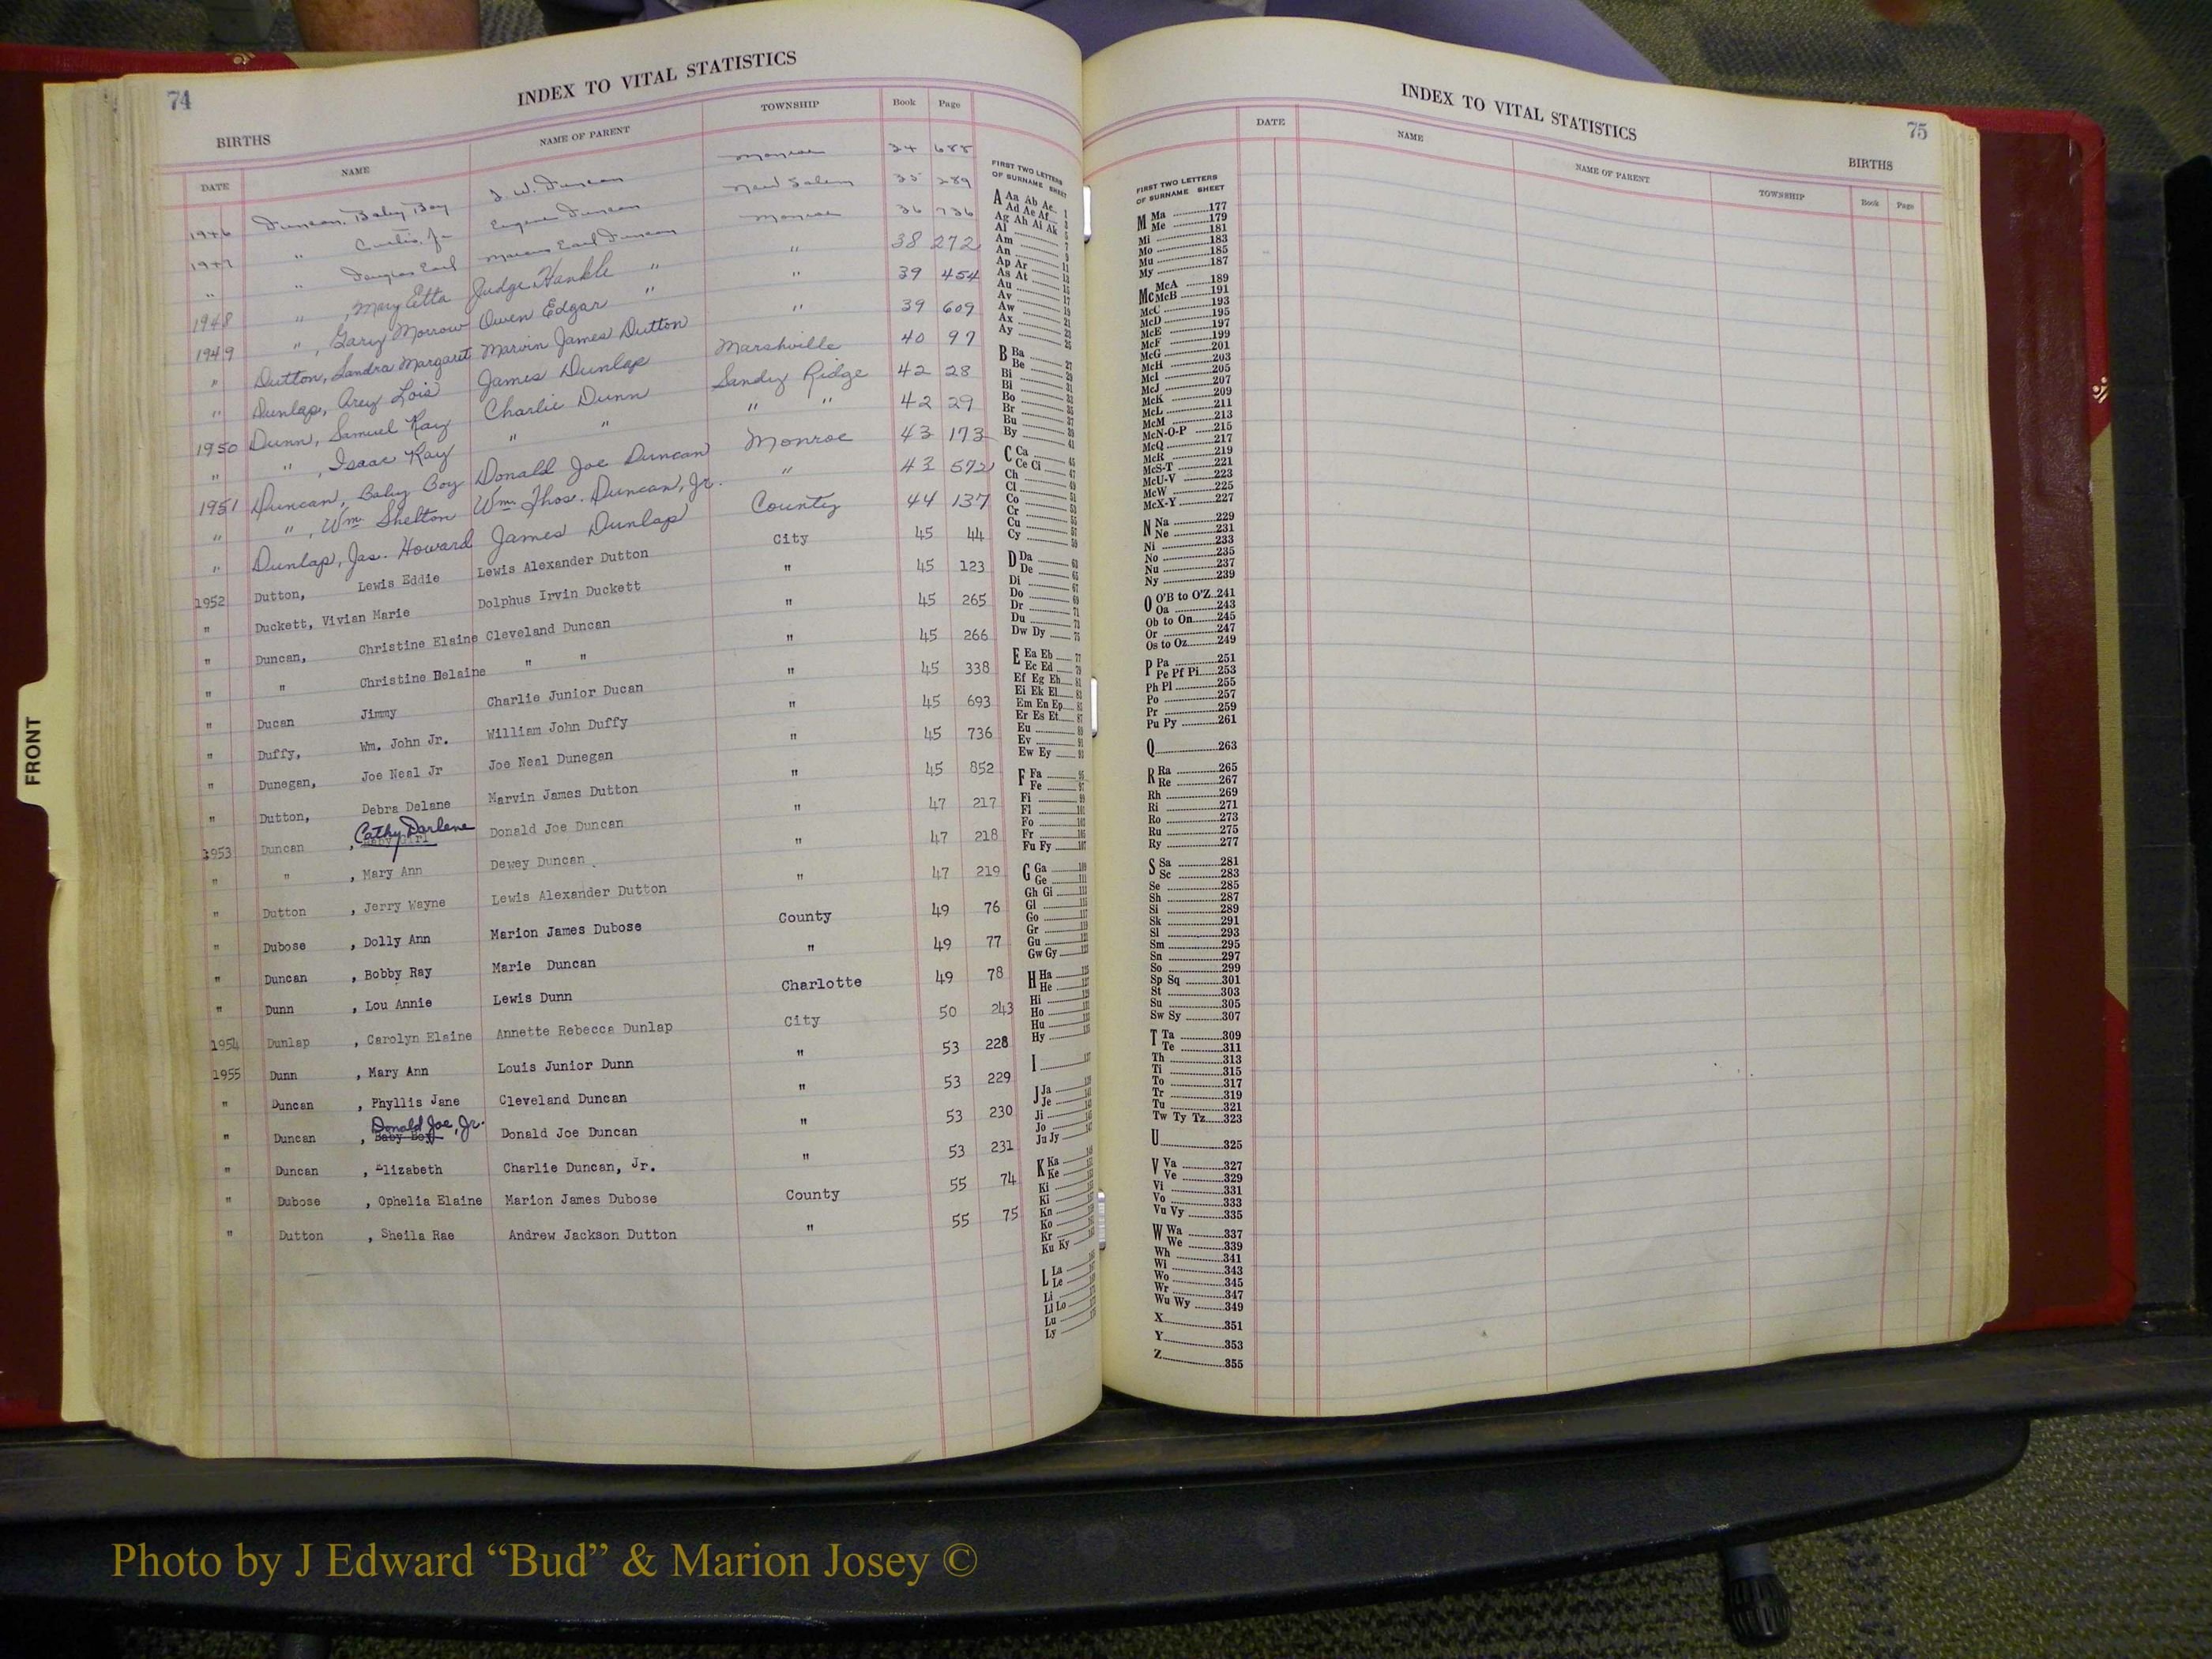 74
INDEX TO VITAL STATISTICS
BIRTHS
DATE NAME NAME OF PARENT TOWNSHIP Book Page
1946 Duncan, Baby Boy J. W. Duncan Monroe 34 688
1947 " Curtis, Jr Eugene Duncan New Salem 35 289
" " Douglas Earl Marcus Earl Duncan Monroe 36 736
1948 " , Mary Etta Judge Hankle " " 38 272
1949 " , Gary Morrow Owen Edgar " " 39 454
" Dutton, Sandra Margaret Marvin James Dutton " 39 609
" Dunlap, Arey Lois James Dunlap Marshville 40 97
1950 Dunn, Samuel Ray Charlie Dunn Sandy Ridge 42 28
" " , Isaac Ray " " " " 42 29
1951 Duncan, Baby Boy Donald Joe Duncan Monroe 43 173
" " , Wm. Shelton Wm. Thos. Duncan, Jr. " 43 572
" Dunlap, Jas. Howard James Dunlap County 44 137
1952 Dutton, Lewis Eddie Lewis Alexander Dutton City 45 44
" Duckett, Vivian Marie Dolphus Irvin Duckett " 45 123
" Duncan, Christine Elaine Cleveland Duncan " 45 265
" " Christine Delaine " " " 45 266
" Ducan Jimmy Charlie Junior Ducan " 45 338
" Duffy, Wm. John Jr. William John Duffy " 45 693
" Dunegan, Joe Neal Jr Joe Neal Dunegan " 45 736
" Dutton, Debra Delane Marvin James Dutton " 45 852
Cathy Darlene
1953 Duncan , Baby Girl Donald Joe Duncan " 47 217
" " , Mary Ann Dewey Duncan " 47 218
" Dutton , Jerry Wayne Lewis Alexander Dutton " 47 219
" Dubose , Dolly Ann Marion James Dubose County 49 76
" Duncan , Bobby Ray Marie Duncan " 49 77
" Dunn , Lou Annie Lewis Dunn Charlotte 49 78
1954 Dunlap , Carolyn Elaine Annette Rebecca Dunlap City 50 243
1955 Dunn , Mary Ann Louis Junior Dunn " 53 228
" Duncan , Phyllis Jane Cleveland Duncan " 53 229
Donald Joe, Jr.
" Duncan , Baby Boy Donald Joe Duncan " 53 230
" Duncan , Elizabeth Charlie Duncan, Jr. " 53 231
" Dubose , Ophelia Elaine Marion James Dubose County 55 74
" Dutton , Sheila Rae Andrew Jackson Dutton " 55 75
FIRST TWO LETTERS
OF SURNAME SHEET
A Aa Ab Ac 1
Ad Ae Af
Ag Ah Ai Ak
Al
Am
An
Ap Ar 11
As At
Au
Av
Aw
Ax
Ay
B Ba
Be
Bi
Bl
Bo
Br
Bu
By
C Ca
Ce Ci
Ch
Cl
Co
Cr
Cu
Cy
D Da
De
Di
Do
Dr
Du
Dw Dy
E Ea Eb
Ec Ed
Ef Eg Eh
Ei Ek El
Em En Ep
Er Es Et
Eu
Ev
Ew Ey
F Fa
Fe
Fi
Fl
Fo
Fr
Fu Fy
G Ga
Ge
Gh Gi
Gl
Go
Gr
Gu
Gw Gy
H Ha
He
Hi
Ho
Hu
Hy
I
J Ja
Je
Ji
Jo
Ju Jy
K Ka
Ke
Ki
Kl
Kn
Ko
Kr
Ku Ky
L La
Le
Li
Ll Lo
Lu
Ly
FRONT
INDEX TO VITAL STATISTICS
75
BIRTHS
DATE NAME NAME OF PARENT TOWNSHIP Book Page
FIRST TWO LETTERS
OF SURNAME SHEET
M Ma 177
Me 179
Mi 181
Mo 183
Mu 185
My 187
Mc McA 189
McB 191
McC 193
McD 195
McE 197
McF 199
McG 201
McH 203
McI 205
McJ 207
McK 209
McL 211
McM 213
McN-O-P 215
McQ 217
McR 219
McS-T 221
McU-V 223
McW 225
McX-Y 227
N Na 229
Ne 231
Ni 233
No 235
Nu 237
Ny 239
O O'B to O'Z 241
Oa 243
Ob to On 245
Or 247
Os to Oz 249
P Pa 251
Pe Pf Pi 253
Ph Pl 255
Po 257
Pr 259
Pu Py 261
Q 263
R Ra 265
Re 267
Rh 269
Ri 271
Ro 273
Ru 275
Ry 277
S Sa 281
Sc 283
Se 285
Sh 287
Si 289
Sk 291
Sl 293
Sm 295
Sn 297
So 299
Sp Sq 301
St 303
Su 305
Sw Sy 307
T Ta 309
Te 311
Th 313
Ti 315
To 317
Tr 319
Tu 321
Tw Ty Tz 323
U 325
V Va 327
Ve 329
Vi 331
Vo 333
Vu Vy 335
W Wa 337
We 339
Wh 341
Wi 343
Wo 345
Wr 347
Wu Wy 349
X 351
Y 353
Z 355
Photo by J Edward “Bud” & Marion Josey ©